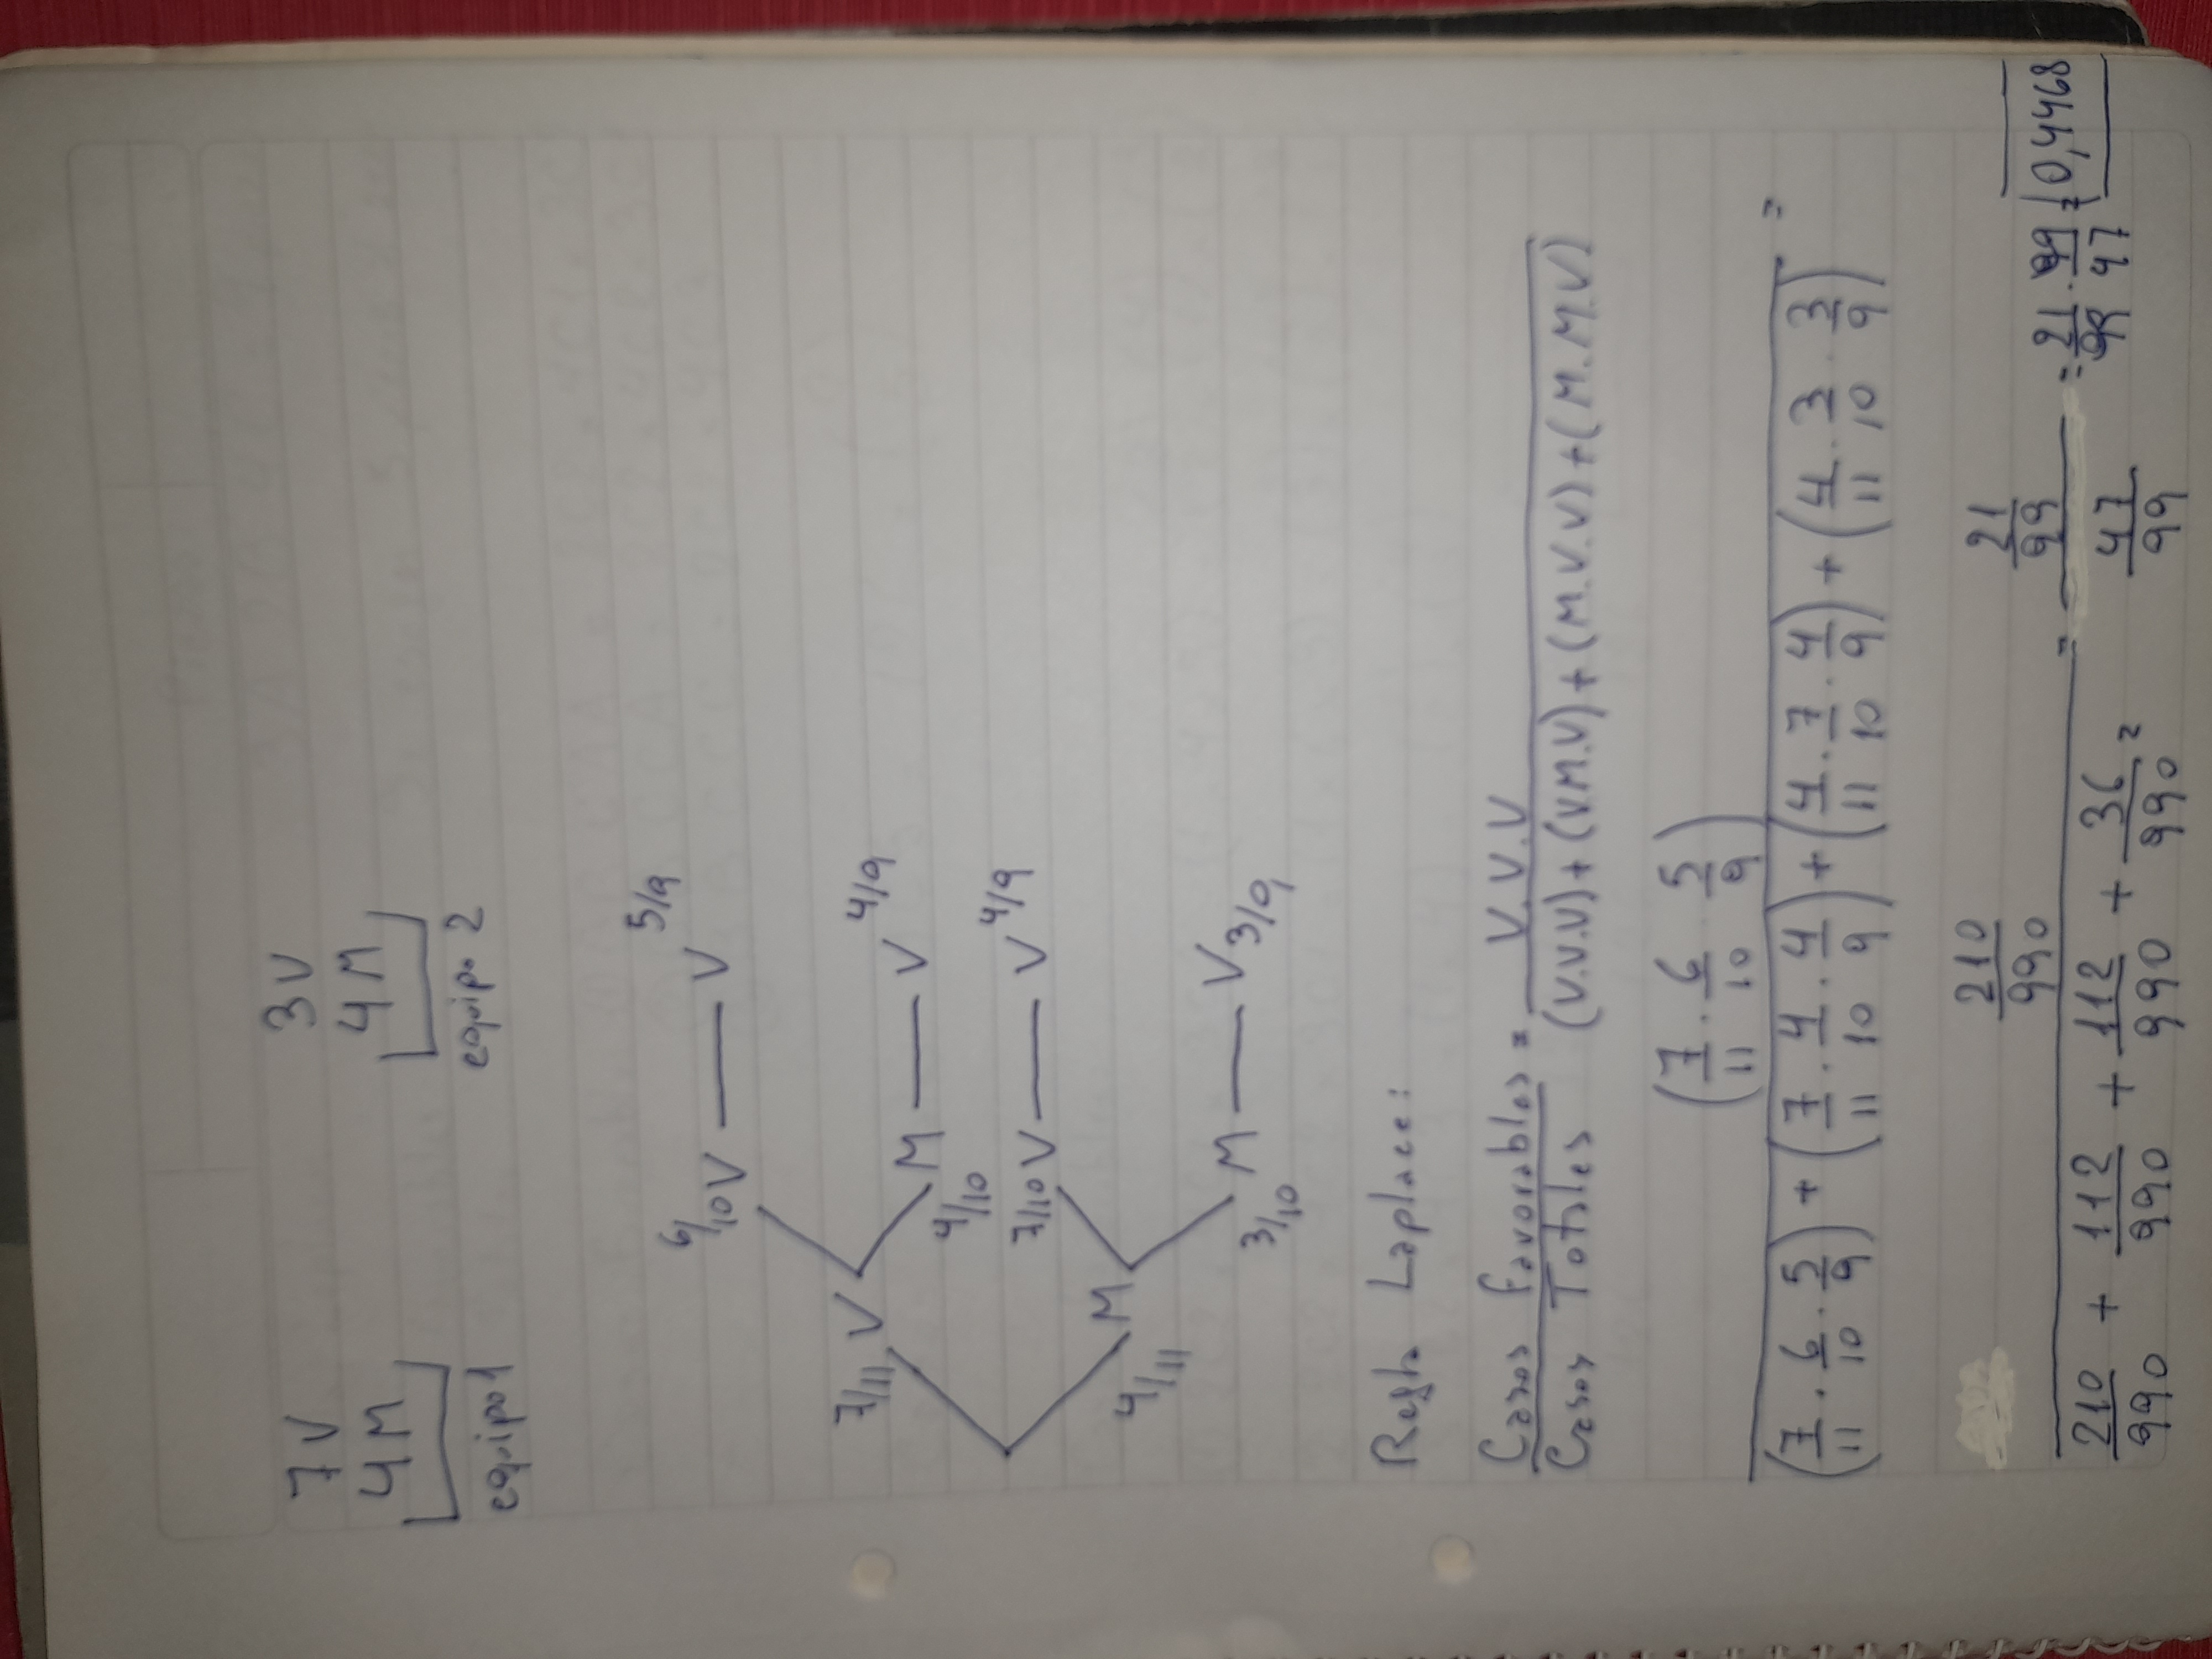 7V 3V
4M 4M
equipo1 equipo 2
6/10 V — V 5/9
7/11 V
M — V 4/9
4/10
7/10 V — V 4/9
4/11 M
3/10 M — V 3/9
Regla Laplace:
Casos favorables = V.V.V
Casos Totales (V.V.V)+(V.M.V)+(M.V.V)+(M.M.V)
(7/11 . 6/10 . 5/9)
(7/11 . 6/10 . 5/9) + (7/11 . 4/10 . 4/9) + (4/11 . 7/10 . 4/9) + (4/11 . 3/10 . 3/9) =
210/990 21/99
210/990 + 112/990 + 112/990 + 36/990 = = 47/99 = 21/99 . 99/47 = 0,4468